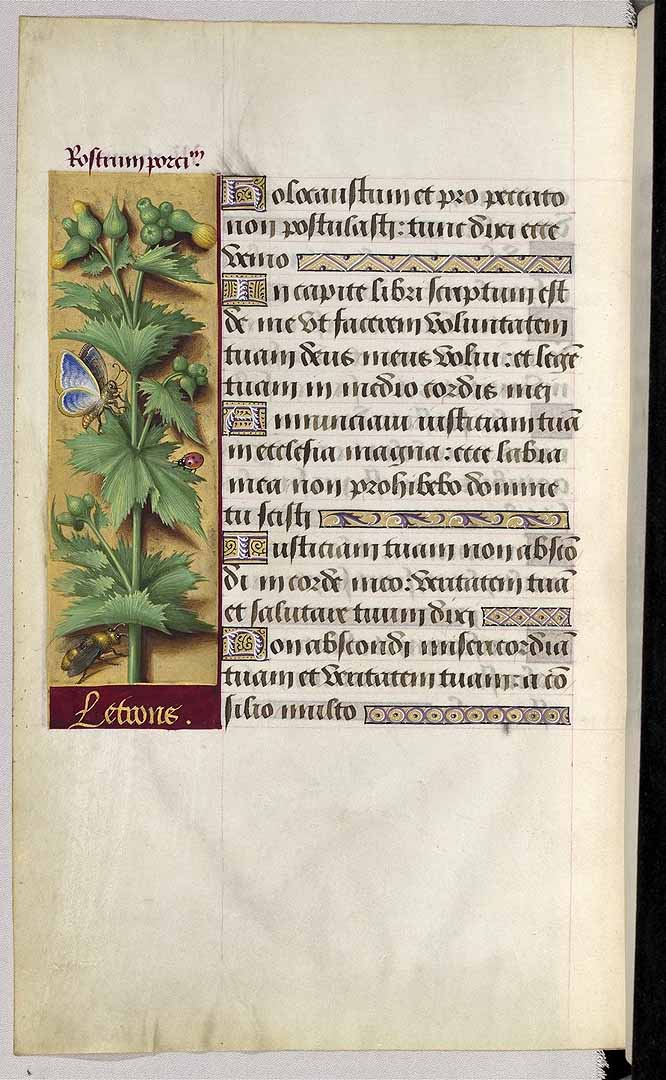 Rostrum porciᵐ
Holocaustum et pro peccato
non postulasti: tunc dixi ecce
venio
In capite libri scriptum est
de me vt facerem voluntatem
tuam deus meus volui: et legē
tuam in medio cordis mei
Annunciaui iusticiam tuā
in ecclesia magna: ecce labia
mea non prohibebo domine
tu scisti
Iusticiam tuam non absco
di in corde meo: veritatem tuā
et salutare tuum dixi
Non abscondi misericordiā
tuam et veritatem tuam: a cō
silio multo
Letrons.